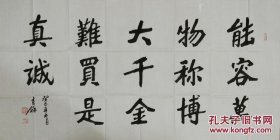 能容萬
物称博
大千金
難買是
真誠